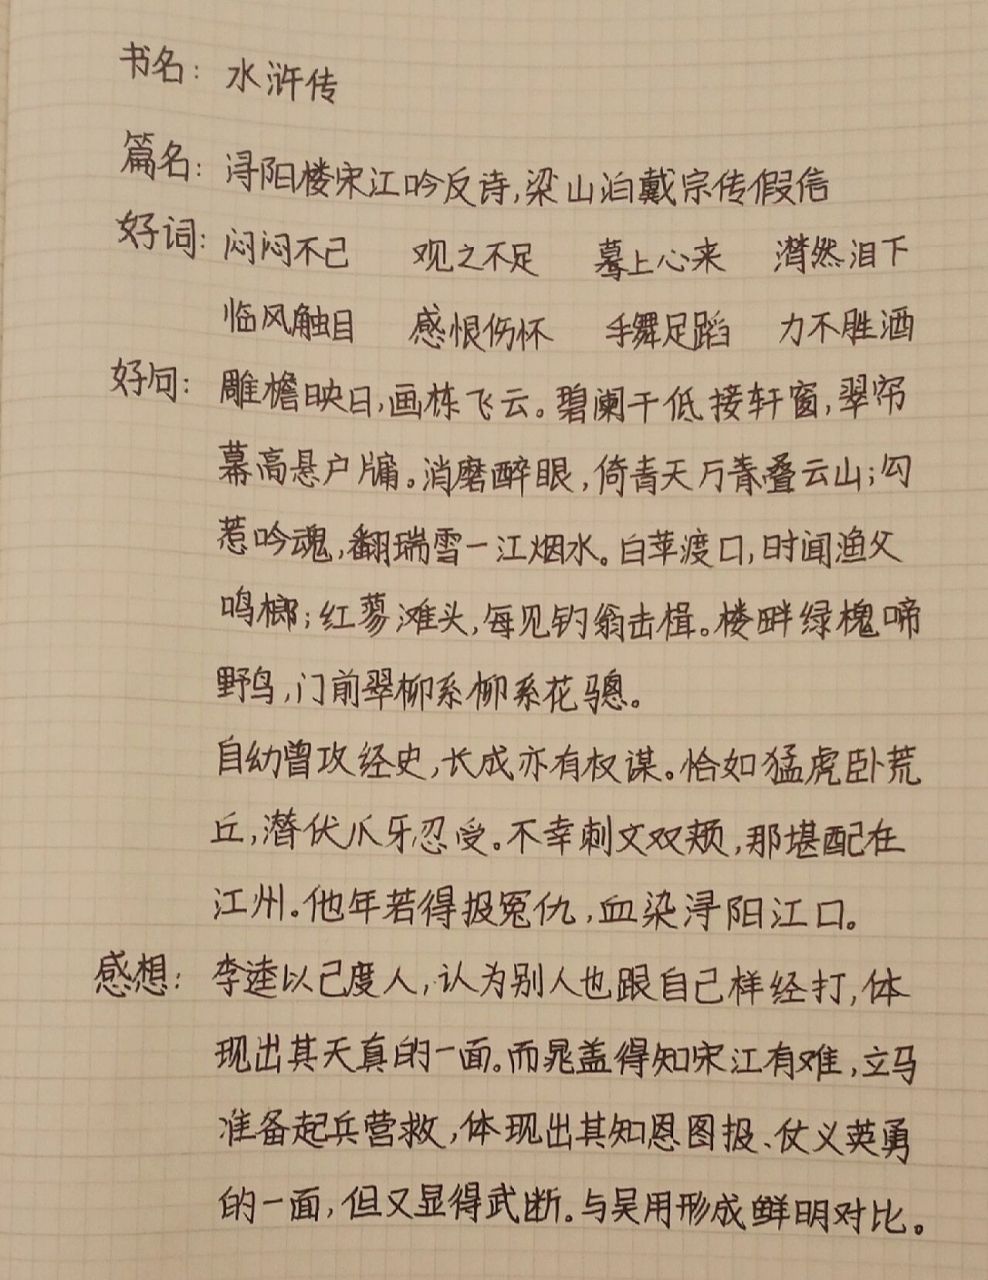 书名：水浒传
篇名：浔阳楼宋江吟反诗，梁山泊戴宗传假信
好词：闷闷不已 观之不足 蓦上心来 潸然泪下
临风触目 感恨伤怀 手舞足蹈 力不胜酒
好句：雕檐映日，画栋飞云。碧阑干低接轩窗，翠帘
幕高悬户牖。消磨醉眼，倚青天万青叠云山；勾
惹吟魂，翻瑞雪一江烟水。白苹渡口，时闻渔父
鸣榔；红蓼滩头，每见钓翁击楫。楼畔绿槐啼
野鸟，门前翠柳系柳系花骢。
自幼曾攻经史，长成亦有权谋。恰如猛虎卧荒
丘，潜伏爪牙忍受。不幸刺文双颊，那堪配在
江州。他年若得报冤仇，血染浔阳江口。
感想：李逵以己度人，认为别人也跟自己样经打，体
现出其天真的一面。而晁盖得知宋江有难，立马
准备起兵营救，体现出其知恩图报、仗义英勇
的一面，但又显得武断。与吴用形成鲜明对比。